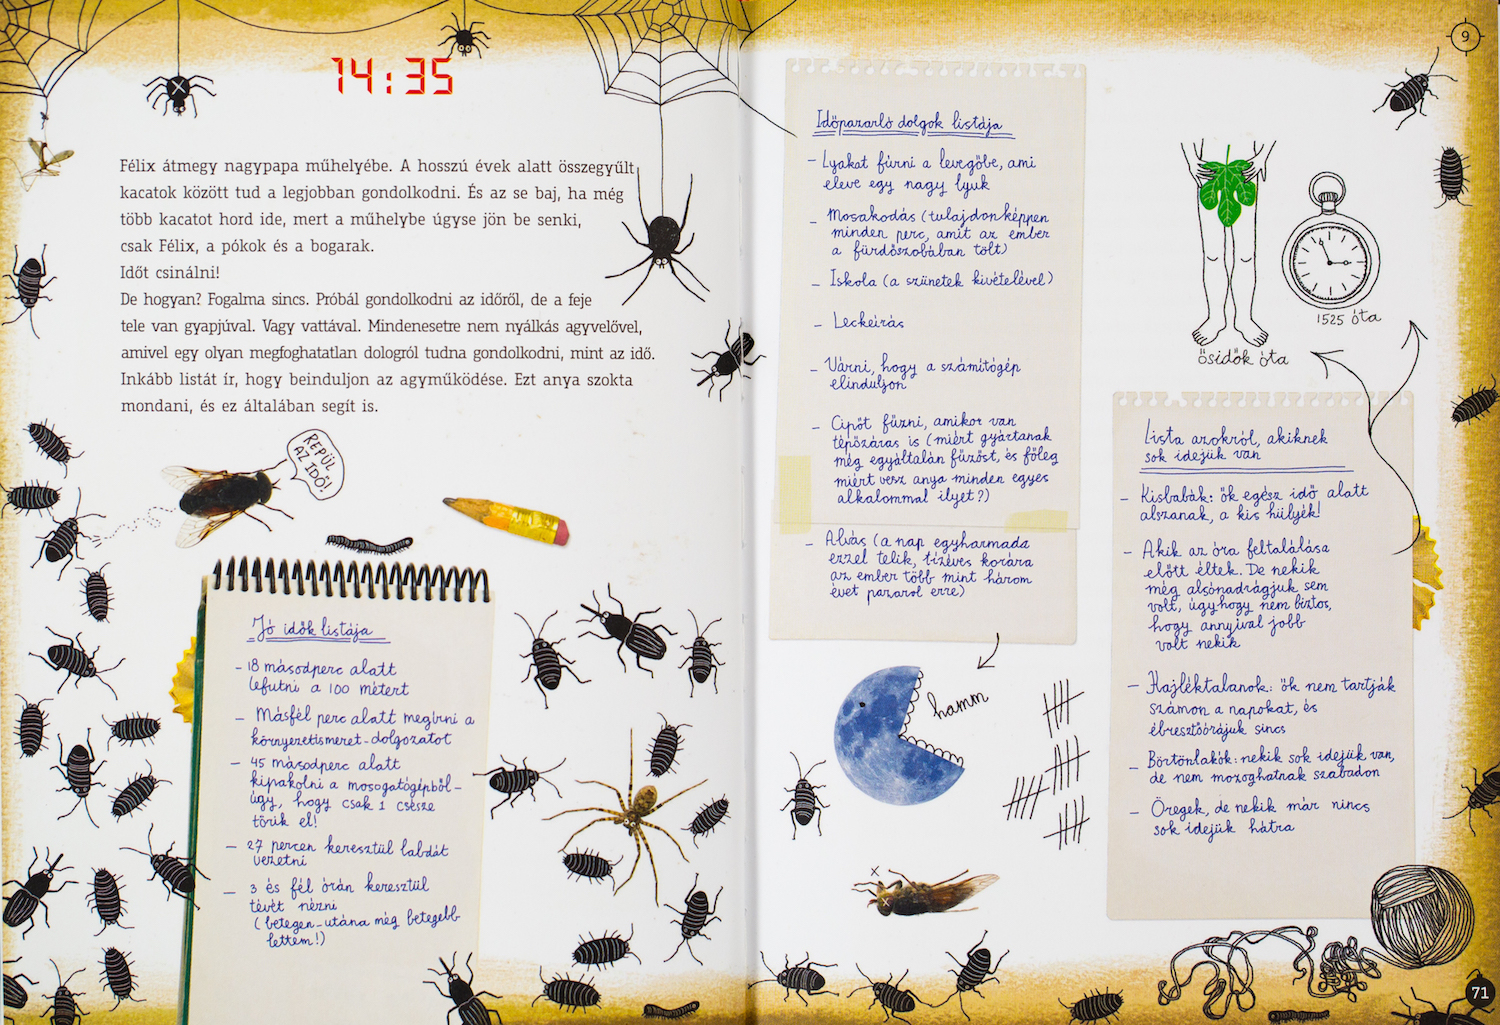 14:35
Félix átmegy nagypapa műhelyébe. A hosszú évek alatt összegyűlt
kacatok között tud a legjobban gondolkodni. És az se baj, ha még
több kacatot hord ide, mert a műhelybe úgyse jön be senki,
csak Félix, a pókok és a bogarak.
Időt csinálni!
De hogyan? Fogalma sincs. Próbál gondolkodni az időről, de a feje
tele van gyapjúval. Vagy vattával. Mindenesetre nem nyálkás agyvelővel,
amivel egy olyan megfoghatatlan dologról tudna gondolkodni, mint az idő.
Inkább listát ír, hogy beinduljon az agyműködése. Ezt anya szokta
mondani, és ez általában segít is.
REPÜL
AZ IDŐ!
Jó idők listája
- 18 másodperc alatt
lefutni a 100 métert
- Másfél perc alatt megírni a
környezetismeret-dolgozatot
- 45 másodperc alatt
kipakolni a mosogatógépből -
úgy, hogy csak 1 csésze
törik el!
- 27 percen keresztül labdát
vezetni
- 3 és fél órán keresztül
tévét nézni
(betegen - utána még betegebb
lettem!)
Időpazarló dolgok listája
- Lyukat fúrni a levegőbe, ami
eleve egy nagy lyuk
- Mosakodás (tulajdonképpen
minden perc, amit az ember
a fürdőszobában tölt)
- Iskola (a szünetek kivételével)
- Leckeírás
- Várni, hogy a számítógép
elinduljon
- Cipőt fűzni, amikor van
tépőzáras is (miért gyártanak
még egyáltalán fűzőst, és főleg
miért vesz anya minden egyes
alkalommal ilyet?)
- Alvás (a nap egyharmada
ezzel telik, tízéves korára
az ember több mint három
évet pazarol erre)
hamm
9
ősidők óta
1525 óta
Lista azokról, akiknek
sok idejük van
- Kisbabák: ők egész idő alatt
alszanak, a kis hülyék!
- Akik az óra feltalálása
előtt éltek. De nekik
még alsónadrágjuk sem
volt, úgyhogy nem biztos,
hogy annyival jobb
volt nekik
- Hajléktalanok: ők nem tartják
számon a napokat, és
ébresztőórájuk sincs
- Börtönlakók: nekik sok idejük van,
de nem mozoghatnak szabadon
- Öregek, de nekik már nincs
sok idejük hátra
71